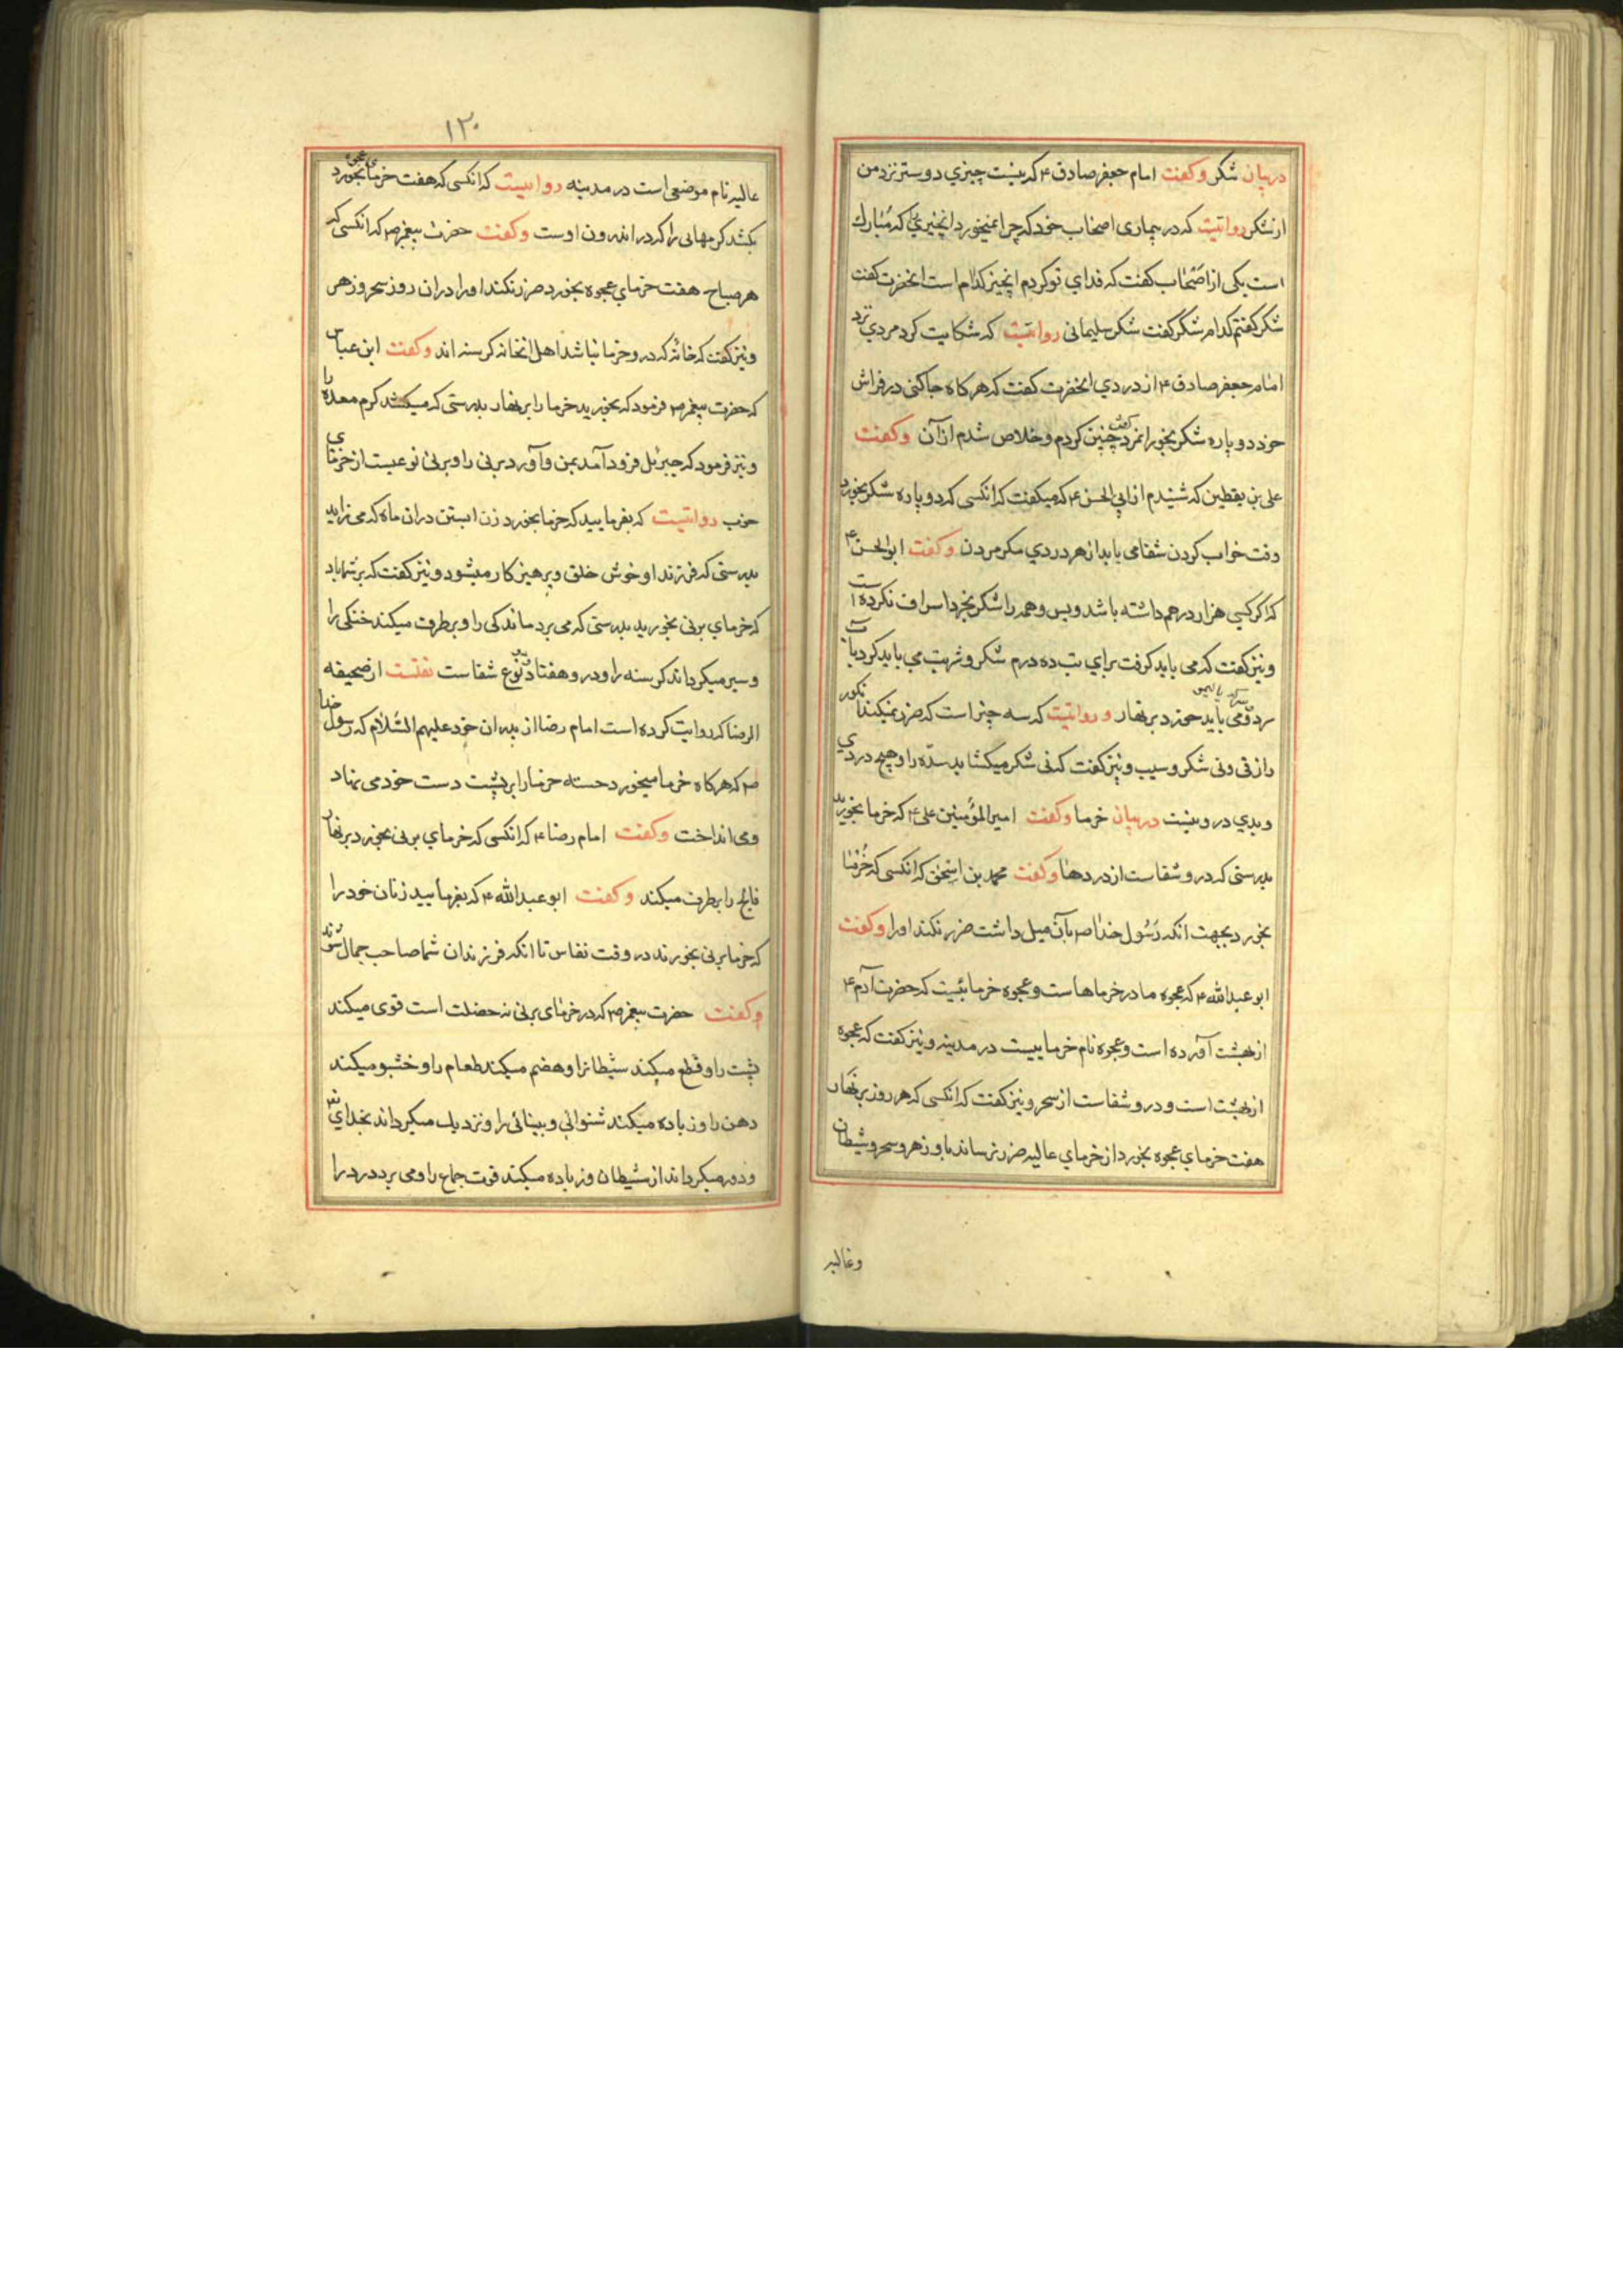 در بیان شکر وکفت امام جعفر صادق ۴ که نیست چیزي دوستر نزد من
از شکر روایتیت که در بیماری اصحاب خود که چرا نمیخورد انچیزي که مُبارك
است یکی از اصحاب کفت که فداي تو کردم انچیز کدام است انحضرت کفت
شکر کفتم کدام شکر کفت شکر سلیمانی روایتیت که شکایت کرد مردي نزد
امام جعفر صادق ۴ از دردي انحضرت کفت که هر کاه جا کنی در فراش
خود دو پاره شکر بخور انمرد کفت چنین کردم و خلاص شدم از آن وکفت
علی بن یقطین که شنیدم از ابي الحسن ۴ که میکفت که انکسی که دو پاره شکر بخورد
وقت خواب کردن شفا می یابد از هر دردي مکر مردن وکفت ابو الحسن ۴
که اکر کسی هزار درهم داشته باشد و بس و همه را شکر بخرد اسراف نکرده است
و نیز کفت که می باید کرفت براي تب ده درم شکر و شربت مي باید کرد باب
سرد و می باید خورد بر نهار و روایتیت که سه چیز است که ضرر نمیکند انکور
رازقی و نی شکر و سیب و نیز کفت که نی شکر میکشاید سدّه را و هیچ دردي
و بدي در و نیست در بیان خرما وکفت امیر المؤمنین علی ۴ که خرما بخورید
بدرستی که در و شفاست از دردها وکفت محمد بن اسحٰق که انکسی که خُرما
بخورد بجهت انکه رَسُول خدا ص بآن میل داشت ضرر نکند او را وکفت
ابو عبد الله ۴ که عجوه مادر خرماهاست و عجوه خرمائیست که حضرت آدم ۴
از بهشت آورده است و عجوه نام خرماییست در مدینه و نیز کفت که عجوه
از بهشت است و در و شفاست از سحر و نیز کفت که انکسی که هر روز بر نهار
هفت خرماي عجوه بخورد از خرماي عالیه ضرر نرساند باو زهر و سحر و شیطان
و عالیه
۱۲۰
عالیه نام موضعی است در مدینه روایتیت که انکسی که هفت خرماي عجوه بخورد
بکشد کرمهایی را که در اندرون اوست وکفت حضرت پیغمبر ص که انکسی که
هر صباح هفت خرماي عجوه بخورد ضرر نکند او را در ان روز سحر و زهر
و نیز کفت که خانهٔ که در و خرما نباشد اهل انخانه کرسنه اند وکفت ابن عباس
که حضرت پیغمبر ص فرمود که بخورید خرما را بر نهار بدرستی که میکشد کرم معده را
و نیز فرمود که جبرئل فرود آمد بمن و آورد برنی را و برنی نوعیست از خرماي
خوب روایتیت که بفرمایید که خرما بخورد زن ابستن در ان ماه که می زاید
بدرستی که فرزند او خوش خلق و پرهیز کار میشود و نیز کفت که بر شما باد
که خرماي برنی بخورید بدرستی که می برد ماندکی را و برطرف میکند خنکی را
و سیر میکرداند کرسنه را و در و هفتاد و دو نوع شفاست نقلست از صحیفه
الرضا که روایت کرده است امام رضا از پدران خود علیهم السّلام که رسول خدا
ص که هرکاه خرما میخورد خسته خرما را بر پشت دست خود می نهاد
و می انداخت وکفت امام رضا ۴ که انکسی که خرماي برنی بخورد بر نهار
فالج را برطرف میکند وکفت ابو عبد الله ۴ که بفرمایید زنان خود را
که خرما برنی بخورند در وقت نفاس تا انکه فرزندان شما صاحب جمال شوند
وکفت حضرت پیغمبر ص که در خرماي برنی نه خصلت است قوی میکند
پشت را و قطع میکند شیطانرا و هضم میکند طعام را و خشبو میکند
دهن را و زیاده میکند شنوائی و بینائی را و نزدیك میکرداند بخداي تع
و دور میکرداند از شیطان و زیاده میکند قوت جماع را و می برد درد را